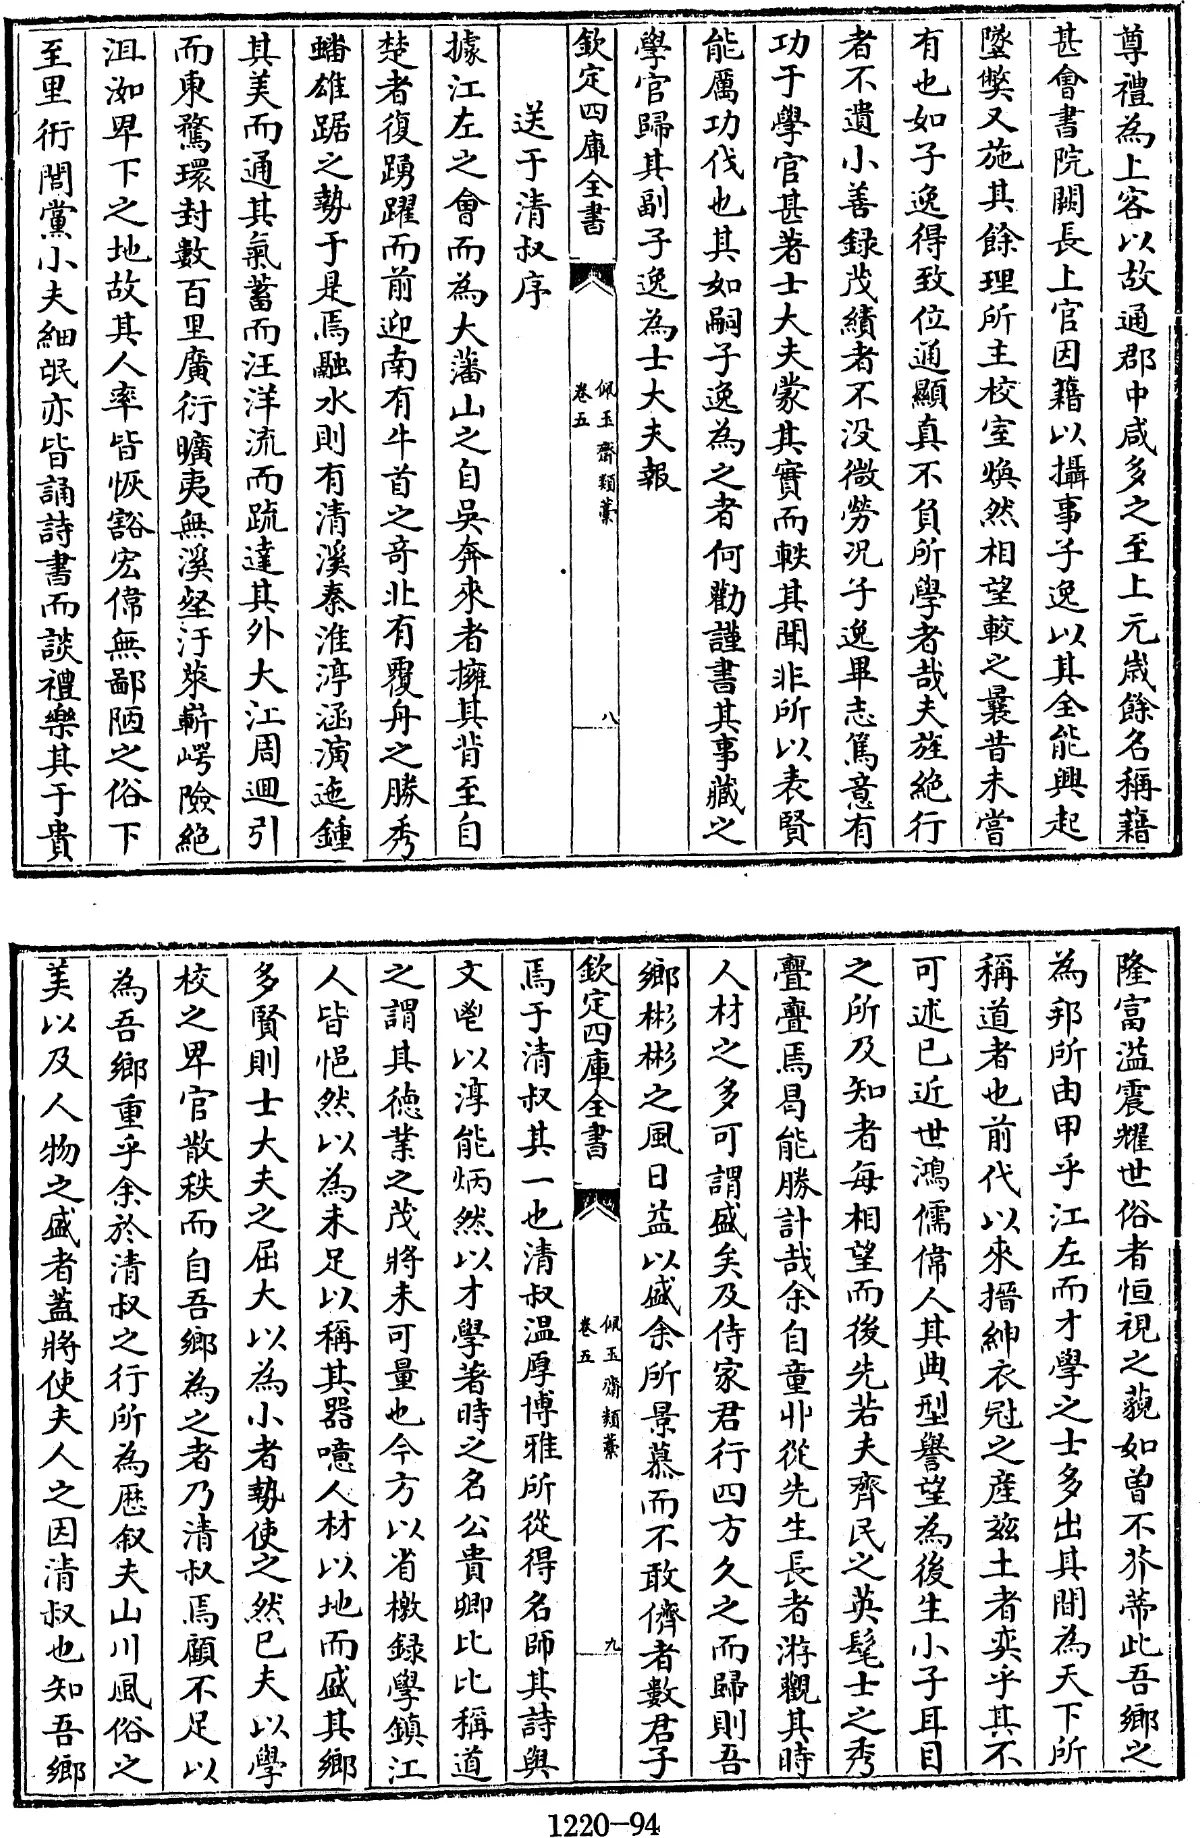 尊禮為上客以故通郡中咸多之至上元嵗餘名稱藉
甚會書院闕長上官因藉以攝事子逸以其全能興起
墜獘又施其餘理所主校室煥然相望較之曩昔未嘗
有也如子逸得致位通顯真不負所學者哉夫旌絶行
者不遺小善録茂績者不没微勞况子逸畢志篤意有
功于學官甚著士大夫蒙其實而軼其聞非所以表賢
能厲功伐也其如嗣子逸為之者何勸謹書其事藏之
學官歸其副子逸為士大夫報
欽定四庫全書
佩玉齋類藁
卷五
八
送于清叔序
據江左之會而為大藩山之自吳奔來者擁其背至自
楚者復踴躍而前迎南有牛首之竒北有覆舟之勝秀
蟠雄踞之勢于是焉融水則有清溪秦淮渟涵演迤鍾
其美而通其氣蓄而汪洋流而疏達其外大江周迴引
而東騖環封數百里廣衍曠夷無溪壑汙萊嶄崿險絶
沮洳卑下之地故其人率皆恢豁宏偉無鄙陋之俗下
至里衖閭黨小夫細氓亦皆誦詩書而談禮樂其于貴
隆富溢震耀世俗者恒視之藐如曽不芥蒂此吾鄉之
為邦所由甲乎江左而才學之士多出其間為天下所
稱道者也前代以來搢紳衣冠之産兹土者奕乎其不
可述已近世鴻儒偉人其典型譽望為後生小子耳目
之所及知者每相望而後先若夫齊民之英髦士之秀
亹亹焉曷能勝計哉余自童丱從先生長者游觀其時
人材之多可謂盛矣及侍家君行四方久之而歸則吾
鄉彬彬之風日益以盛余所景慕而不敢儕者數君子
欽定四庫全書
佩玉齋類藁
卷五
九
焉于清叔其一也清叔温厚博雅所從得名師其詩與
文鬯以淳能炳然以才學著時之名公貴卿比比稱道
之謂其德業之茂將未可量也今方以省檄録學鎮江
人皆悒然以為未足以稱其器噫人材以地而盛其鄉
多賢則士大夫之屈大以為小者勢使之然已夫以學
校之卑官散秩而自吾鄉為之者乃清叔焉顧不足以
為吾鄉重乎余於清叔之行所為歴叙夫山川風俗之
美以及人物之盛者蓋將使夫人之因清叔也知吾鄉
1220-94